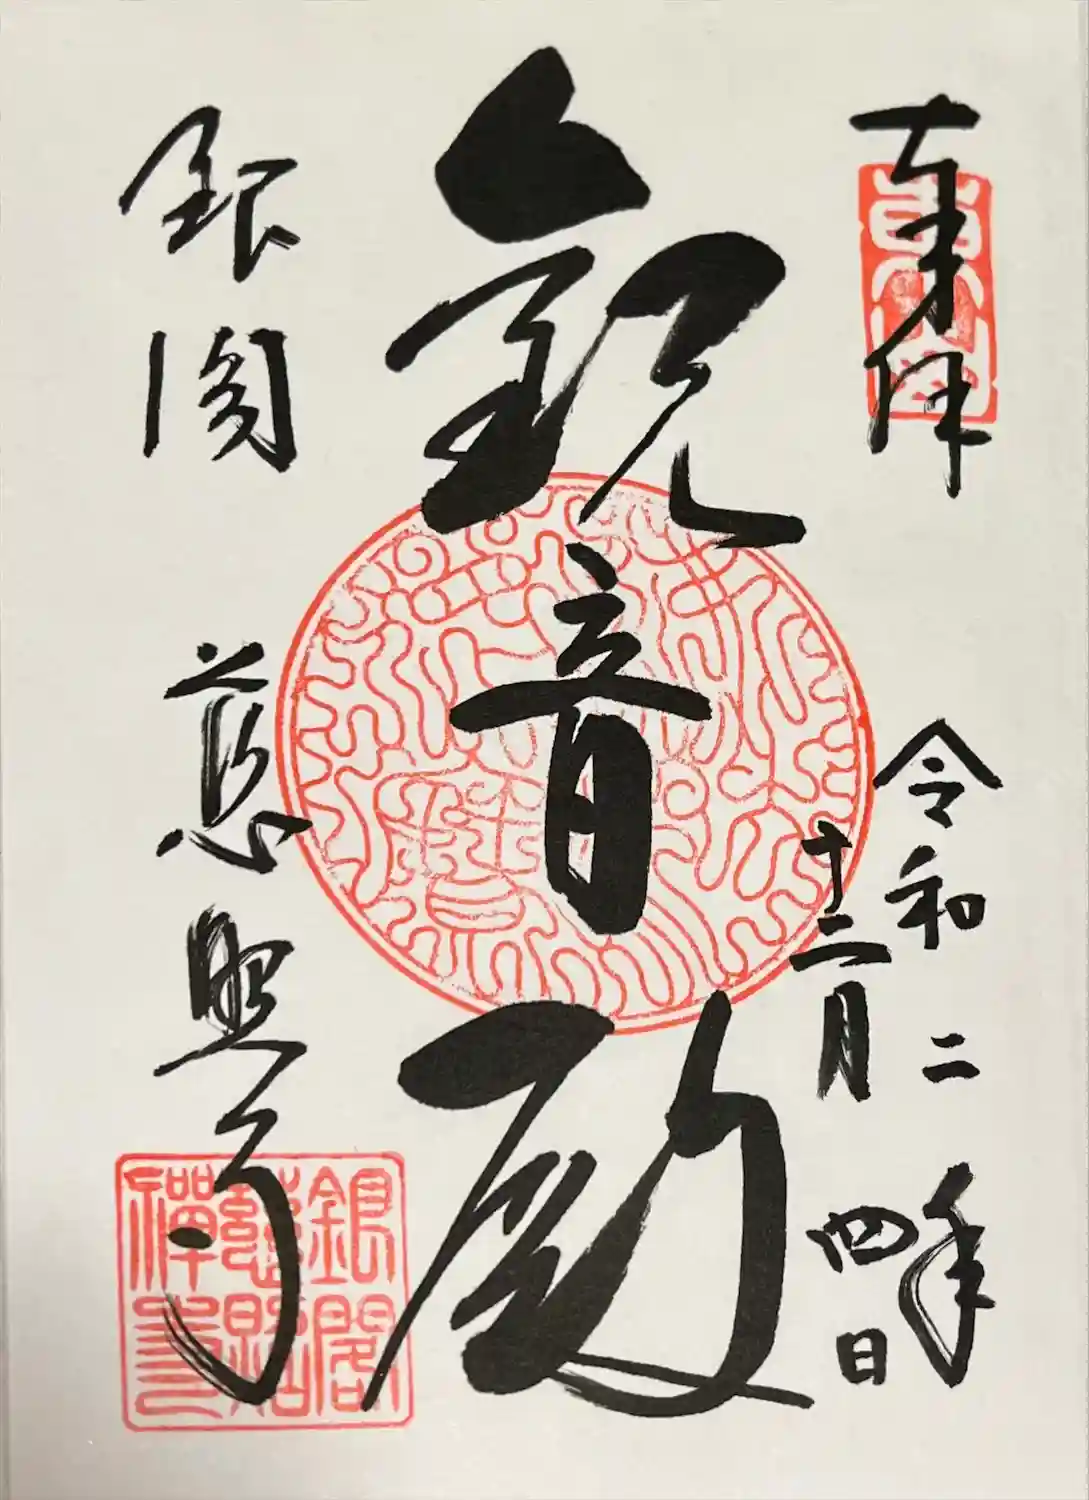 奉拝
令和二年
十二月四日
観音殿
銀閣
慈照寺
銀閣
慈照
禅寺